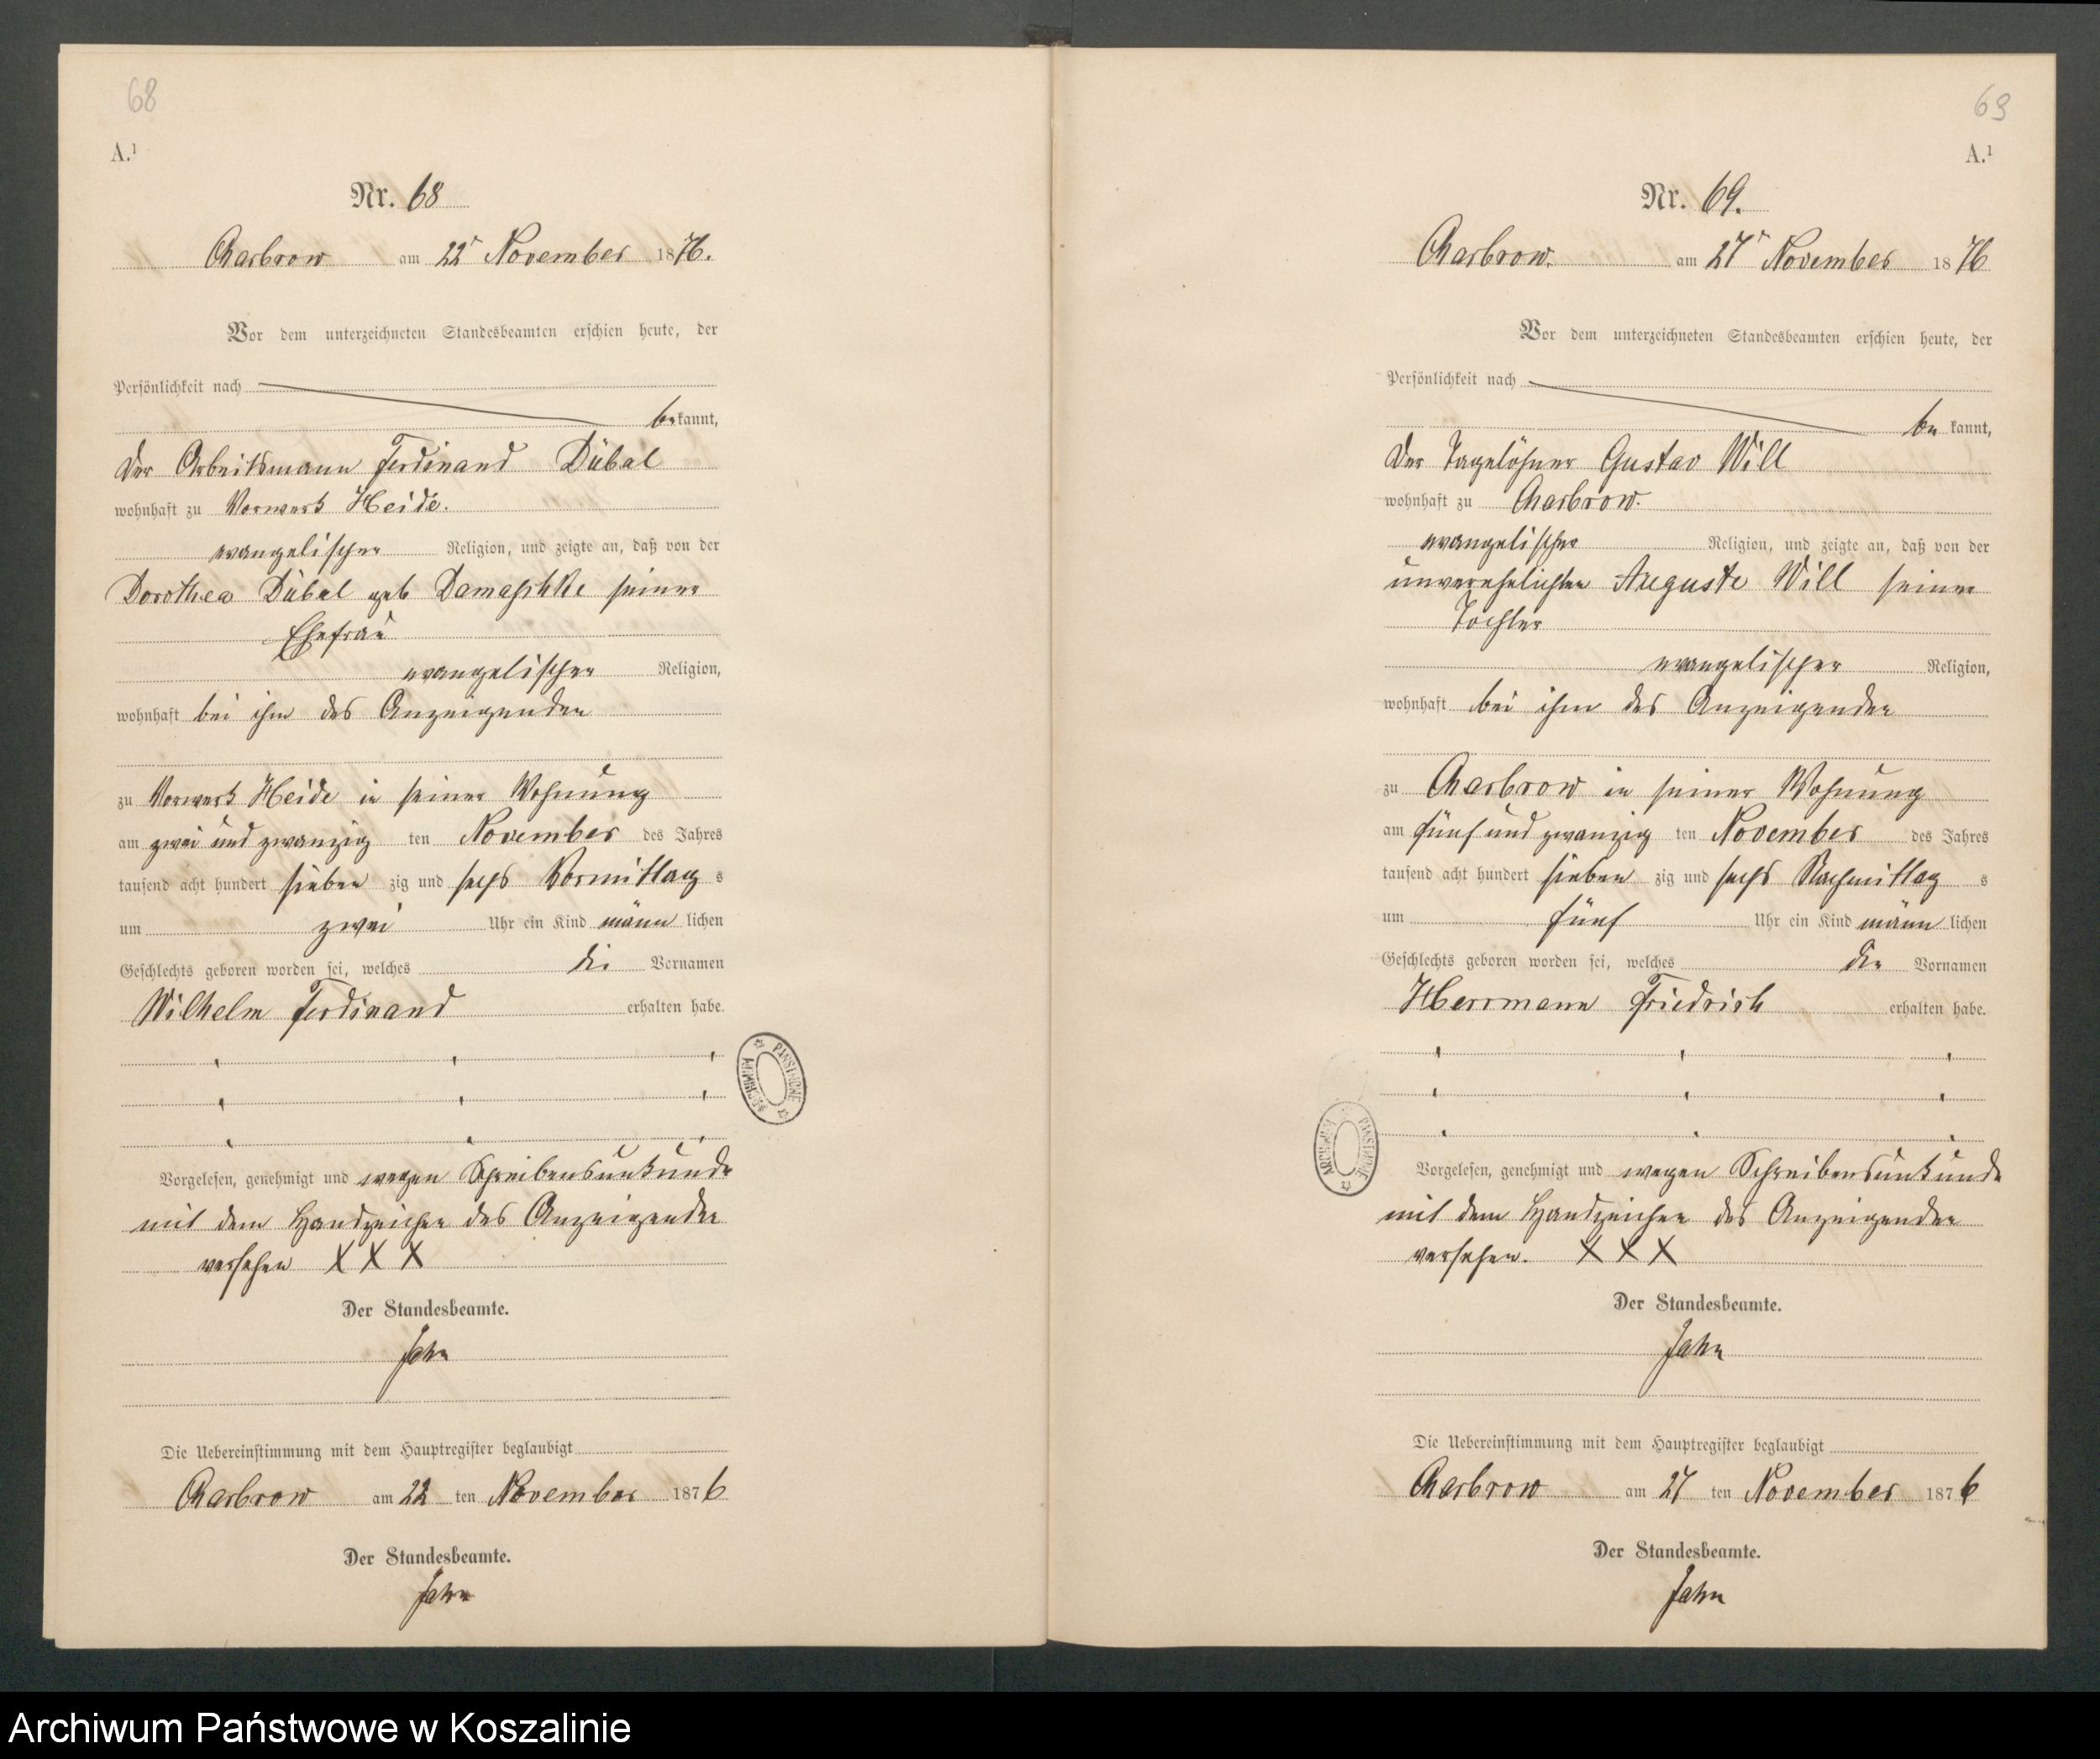 68
A.¹
Nr. 68
Charbrow am 22ⁿ November 1876.
Vor dem unterzeichneten Standesbeamten erschien heute, der
Persönlichkeit nach
bekannt,
der Arbeitsmann Ferdinand Dübal
wohnhaft zu Vorwerk Heide.
evangelischer Religion, und zeigte an, daß von der
Dorothea Dübal geb Damaschke seiner
Ehefrau
evangelischer Religion,
wohnhaft bei ihm des Anzeigenden
zu Vorwerk Heide in seiner Wohnung
am zwei und zwanzig ten November des Jahres
tausend acht hundert sieben zig und sechs Vormittag s
um zwei Uhr ein Kind männ lichen
Geschlechts geboren worden sei, welches die Vornamen
Wilhelm Ferdinand erhalten habe.
Vorgelesen, genehmigt und wegen Schreibensunkunde
mit dem Handzeichen des Anzeigenden
versehen X X X
Der Standesbeamte.
Jahn
Die Uebereinstimmung mit dem Hauptregister beglaubigt
Charbrow am 22 ten November 1876
Der Standesbeamte.
Jahn
ARCHIWUM PAŃSTWOWE
69
A.¹
Nr. 69.
Charbrow. am 27ⁿ November 1876
Vor dem unterzeichneten Standesbeamten erschien heute, der
Persönlichkeit nach
be kannt,
der Tagelöhner Gustav Will
wohnhaft zu Charbrow.
evangelischer Religion, und zeigte an, daß von der
unverehelichten Auguste Will seiner
Tochter
evangelischer Religion,
wohnhaft bei ihm des Anzeigenden
zu Charbrow in seiner Wohnung
am fünf und zwanzig ten November des Jahres
tausend acht hundert sieben zig und sechs Nachmittag s
um fünf Uhr ein Kind männ lichen
Geschlechts geboren worden sei, welches die Vornamen
Herrmann Friedrich erhalten habe.
Vorgelesen, genehmigt und wegen Schreibensunkunde
mit dem Handzeichen des Anzeigenden
versehen. X X X
Der Standesbeamte.
Jahn
Die Uebereinstimmung mit dem Hauptregister beglaubigt
Charbrow am 27 ten November 1876
Der Standesbeamte.
Jahn
ARCHIWUM PAŃSTWOWE
Archiwum Państwowe w Koszalinie